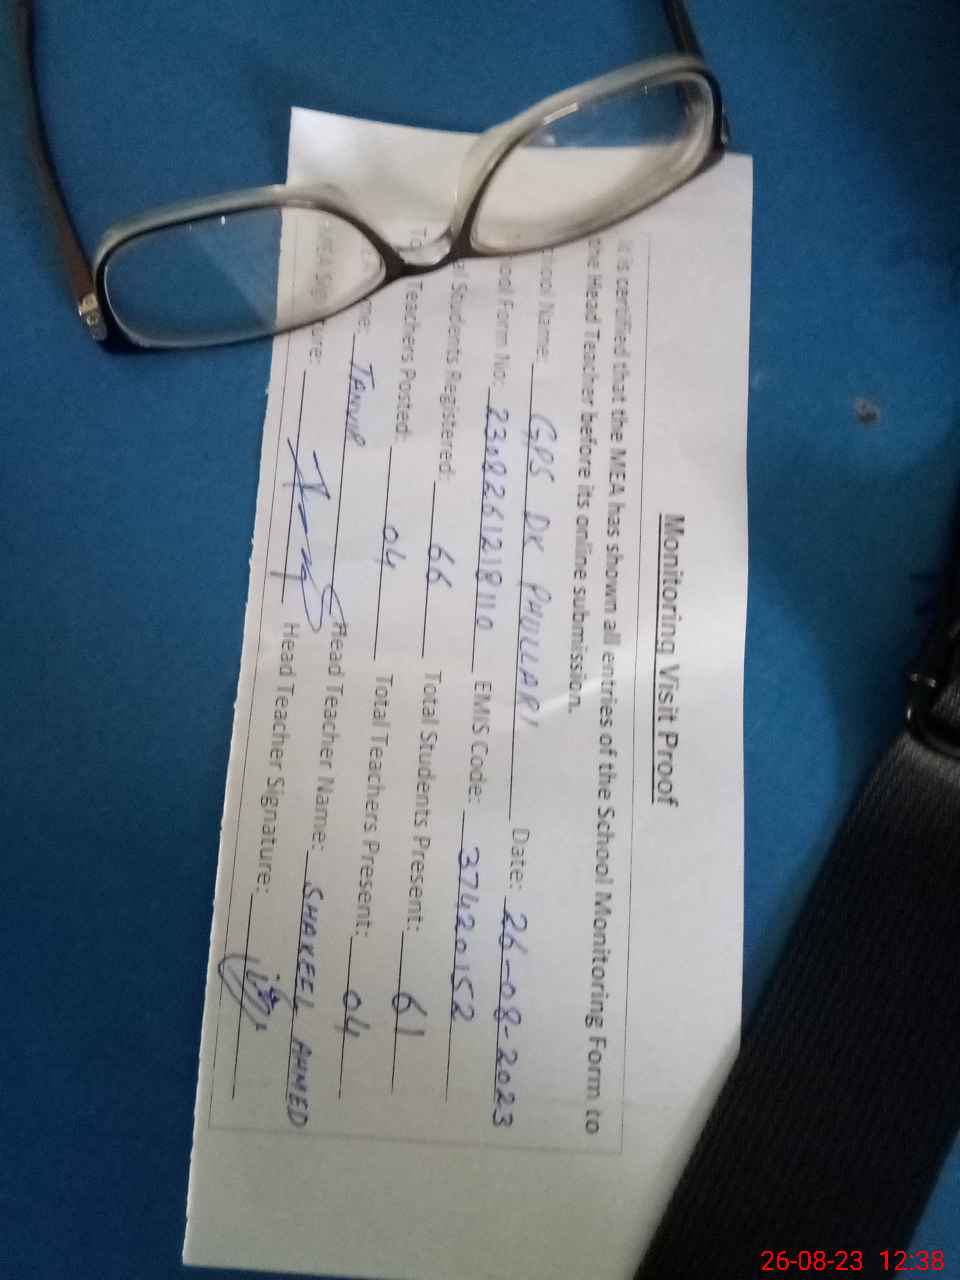 Monitoring Visit Proof
It is certified that the MEA has shown all entries of the School Monitoring Form to
one Head Teacher before its online submission.
ool Name: GPS DK PHULLARI Date: 26-08-2023
ool Form No: 2308261218110 EMIS Code: 37420152
al Students Registered: 66 Total Students Present: 61
Teachers Posted: 04 Total Teachers Present: 04
me: TANVIR Head Teacher Name: SHAKEEL AHMED
MEA Sig ture: Head Teacher Signature:
26-08-23 12:38